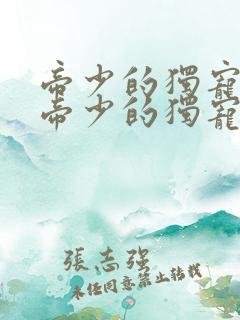 帝少的獨寵
帝少的獨寵
張志强
未任同意禁止轉載